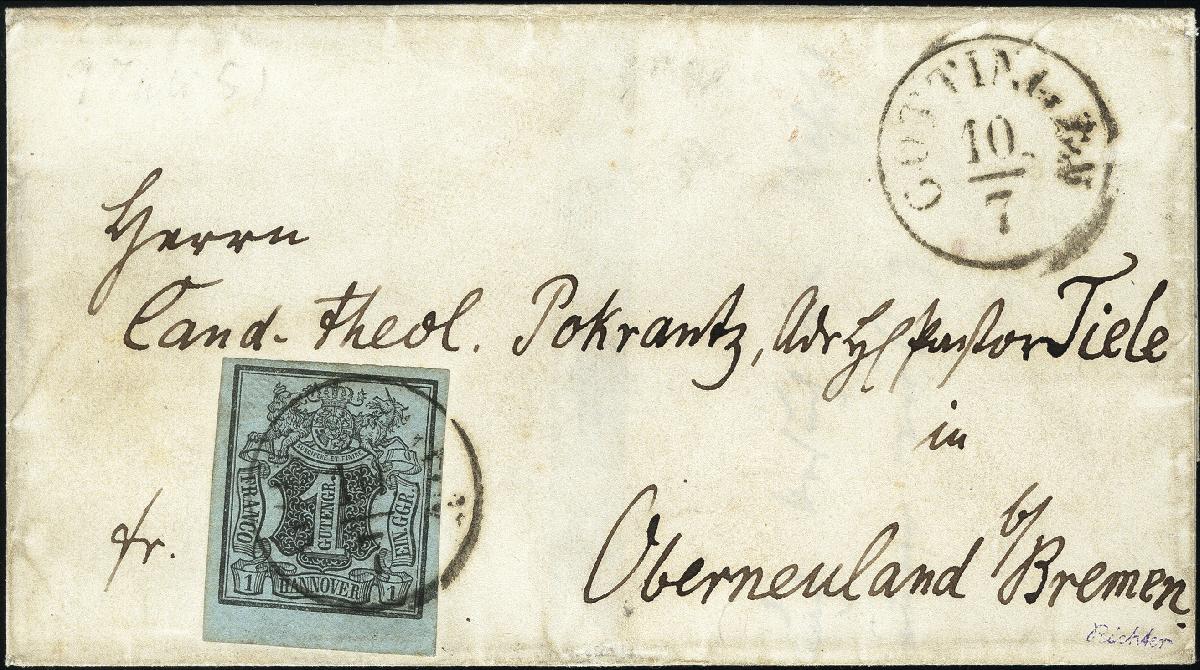 GOTTINGEN
10.
7
Herrn
Cand. theol. Pokrantz, Adr. H. Pastor Tiele
in
fr.
Oberneuland b/Bremen
Richter
SUSCIPERE ET FINIRE
FRANCO
1
GUTENGR.
EIN.GGR.
1
HANNOVER
1